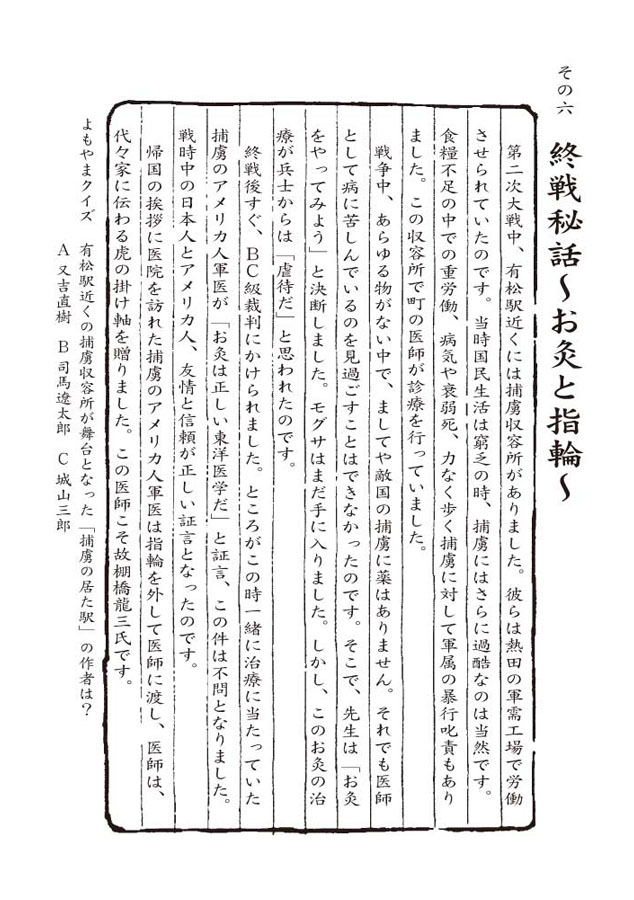 その六
終戦秘話～お灸と指輪～
第二次大戦中、有松駅近くには捕虜収容所がありました。彼らは熱田の軍需工場で労働
させられていたのです。当時国民生活は窮乏の時、捕虜にはさらに過酷なのは当然です。
食糧不足の中での重労働、病気や衰弱死、力なく歩く捕虜に対して軍属の暴行叱責もあり
ました。この収容所で町の医師が診療を行っていました。
戦争中、あらゆる物がない中で、ましてや敵国の捕虜に薬はありません。それでも医師
として病に苦しんでいるのを見過ごすことはできなかったのです。そこで、先生は「お灸
をやってみよう」と決断しました。モグサはまだ手に入りました。しかし、このお灸の治
療が兵士からは「虐待だ」と思われたのです。
終戦後すぐ、ＢＣ級裁判にかけられました。ところがこの時一緒に治療に当たっていた
捕虜のアメリカ人軍医が「お灸は正しい東洋医学だ」と証言、この件は不問となりました。
戦時中の日本人とアメリカ人、友情と信頼が正しい証言となったのです。
帰国の挨拶に医院を訪れた捕虜のアメリカ人軍医は指輪を外して医師に渡し、医師は、
代々家に伝わる虎の掛け軸を贈りました。この医師こそ故棚橋龍三氏です。
よもやまクイズ　有松駅近くの捕虜収容所が舞台となった「捕虜の居た駅」の作者は？
Ａ 又吉直樹　Ｂ 司馬遼太郎　Ｃ 城山三郎